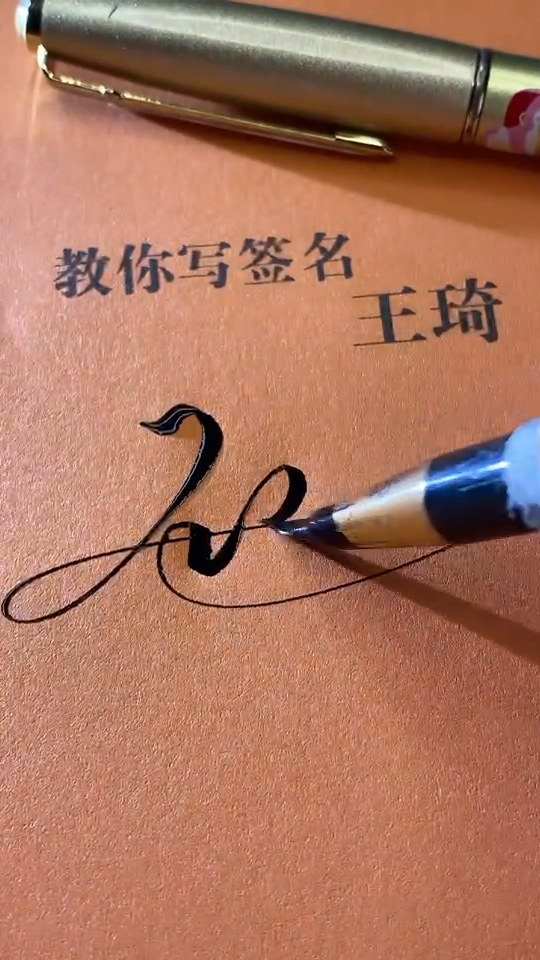 教你写签名
王琦